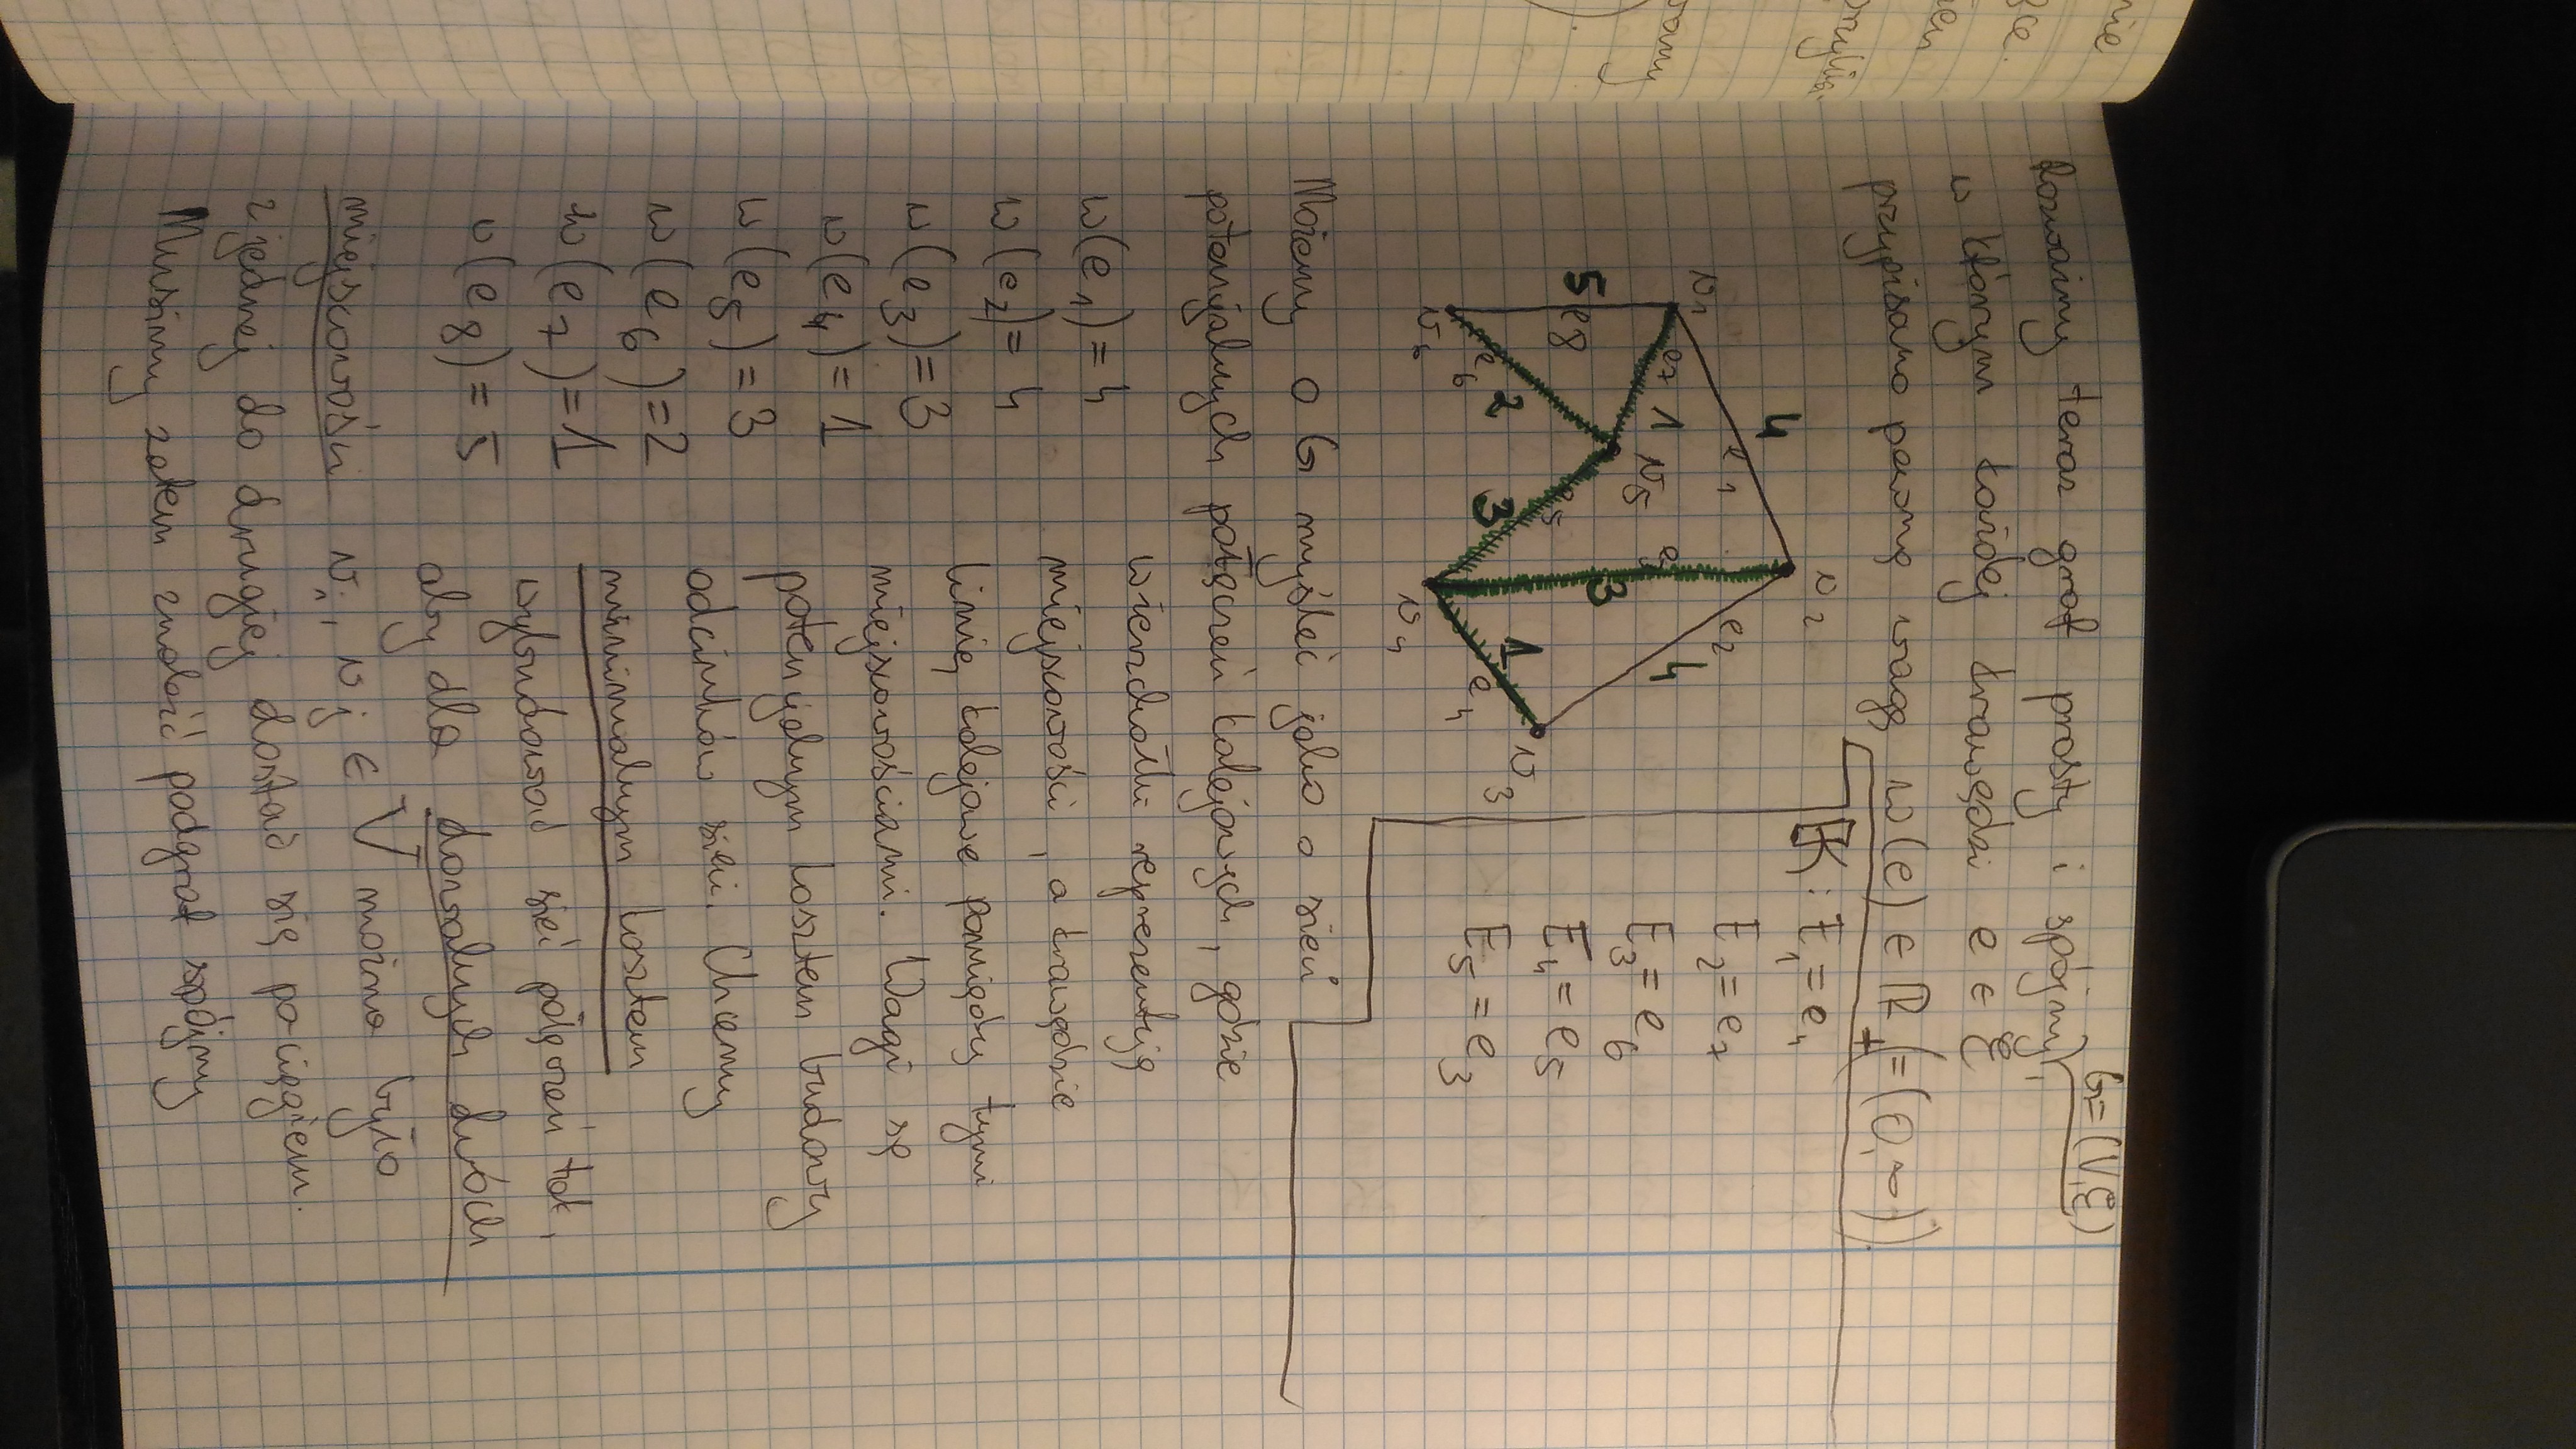 G=(V,E)
Rozważmy teraz graf prosty i spójny,
w którym każdej krawędzi e ∈ E
przypisano pewną wagę w(e) ∈ ℝ₊(=(0,∞)).
v₂
4
e₁
e₂
4
v₁
e₇ 1 v₅
e₃
3
5 e₈
e₅
3
e₆ 2
1
e₄
v₃
v₆
v₄
K: E₁=e₄
E₂=e₇
E₃=e₆
E₄=e₅
E₅=e₃
Możemy o G myśleć jako o sieci
potencjalnych połączeń kolejowych, gdzie
wierzchołki reprezentują
miejscowości, a krawędzie
linię kolejową pomiędzy tymi
miejscowościami. Wagi są
potencjalnym kosztem budowy
odcinków sieci. Chcemy
minimalnym kosztem
wybudować sieć połączeń tak,
aby dla dowolnych dwóch
w(e₁)=4
w(e₂)=4
w(e₃)=3
w(e₄)=1
w(e₅)=3
w(e₆)=2
w(e₇)=1
w(e₈)=5
miejscowości vᵢ, vⱼ ∈ V można było
z jednej do drugiej dostać się pociągiem.
Musimy zatem znaleźć podgraf spójny